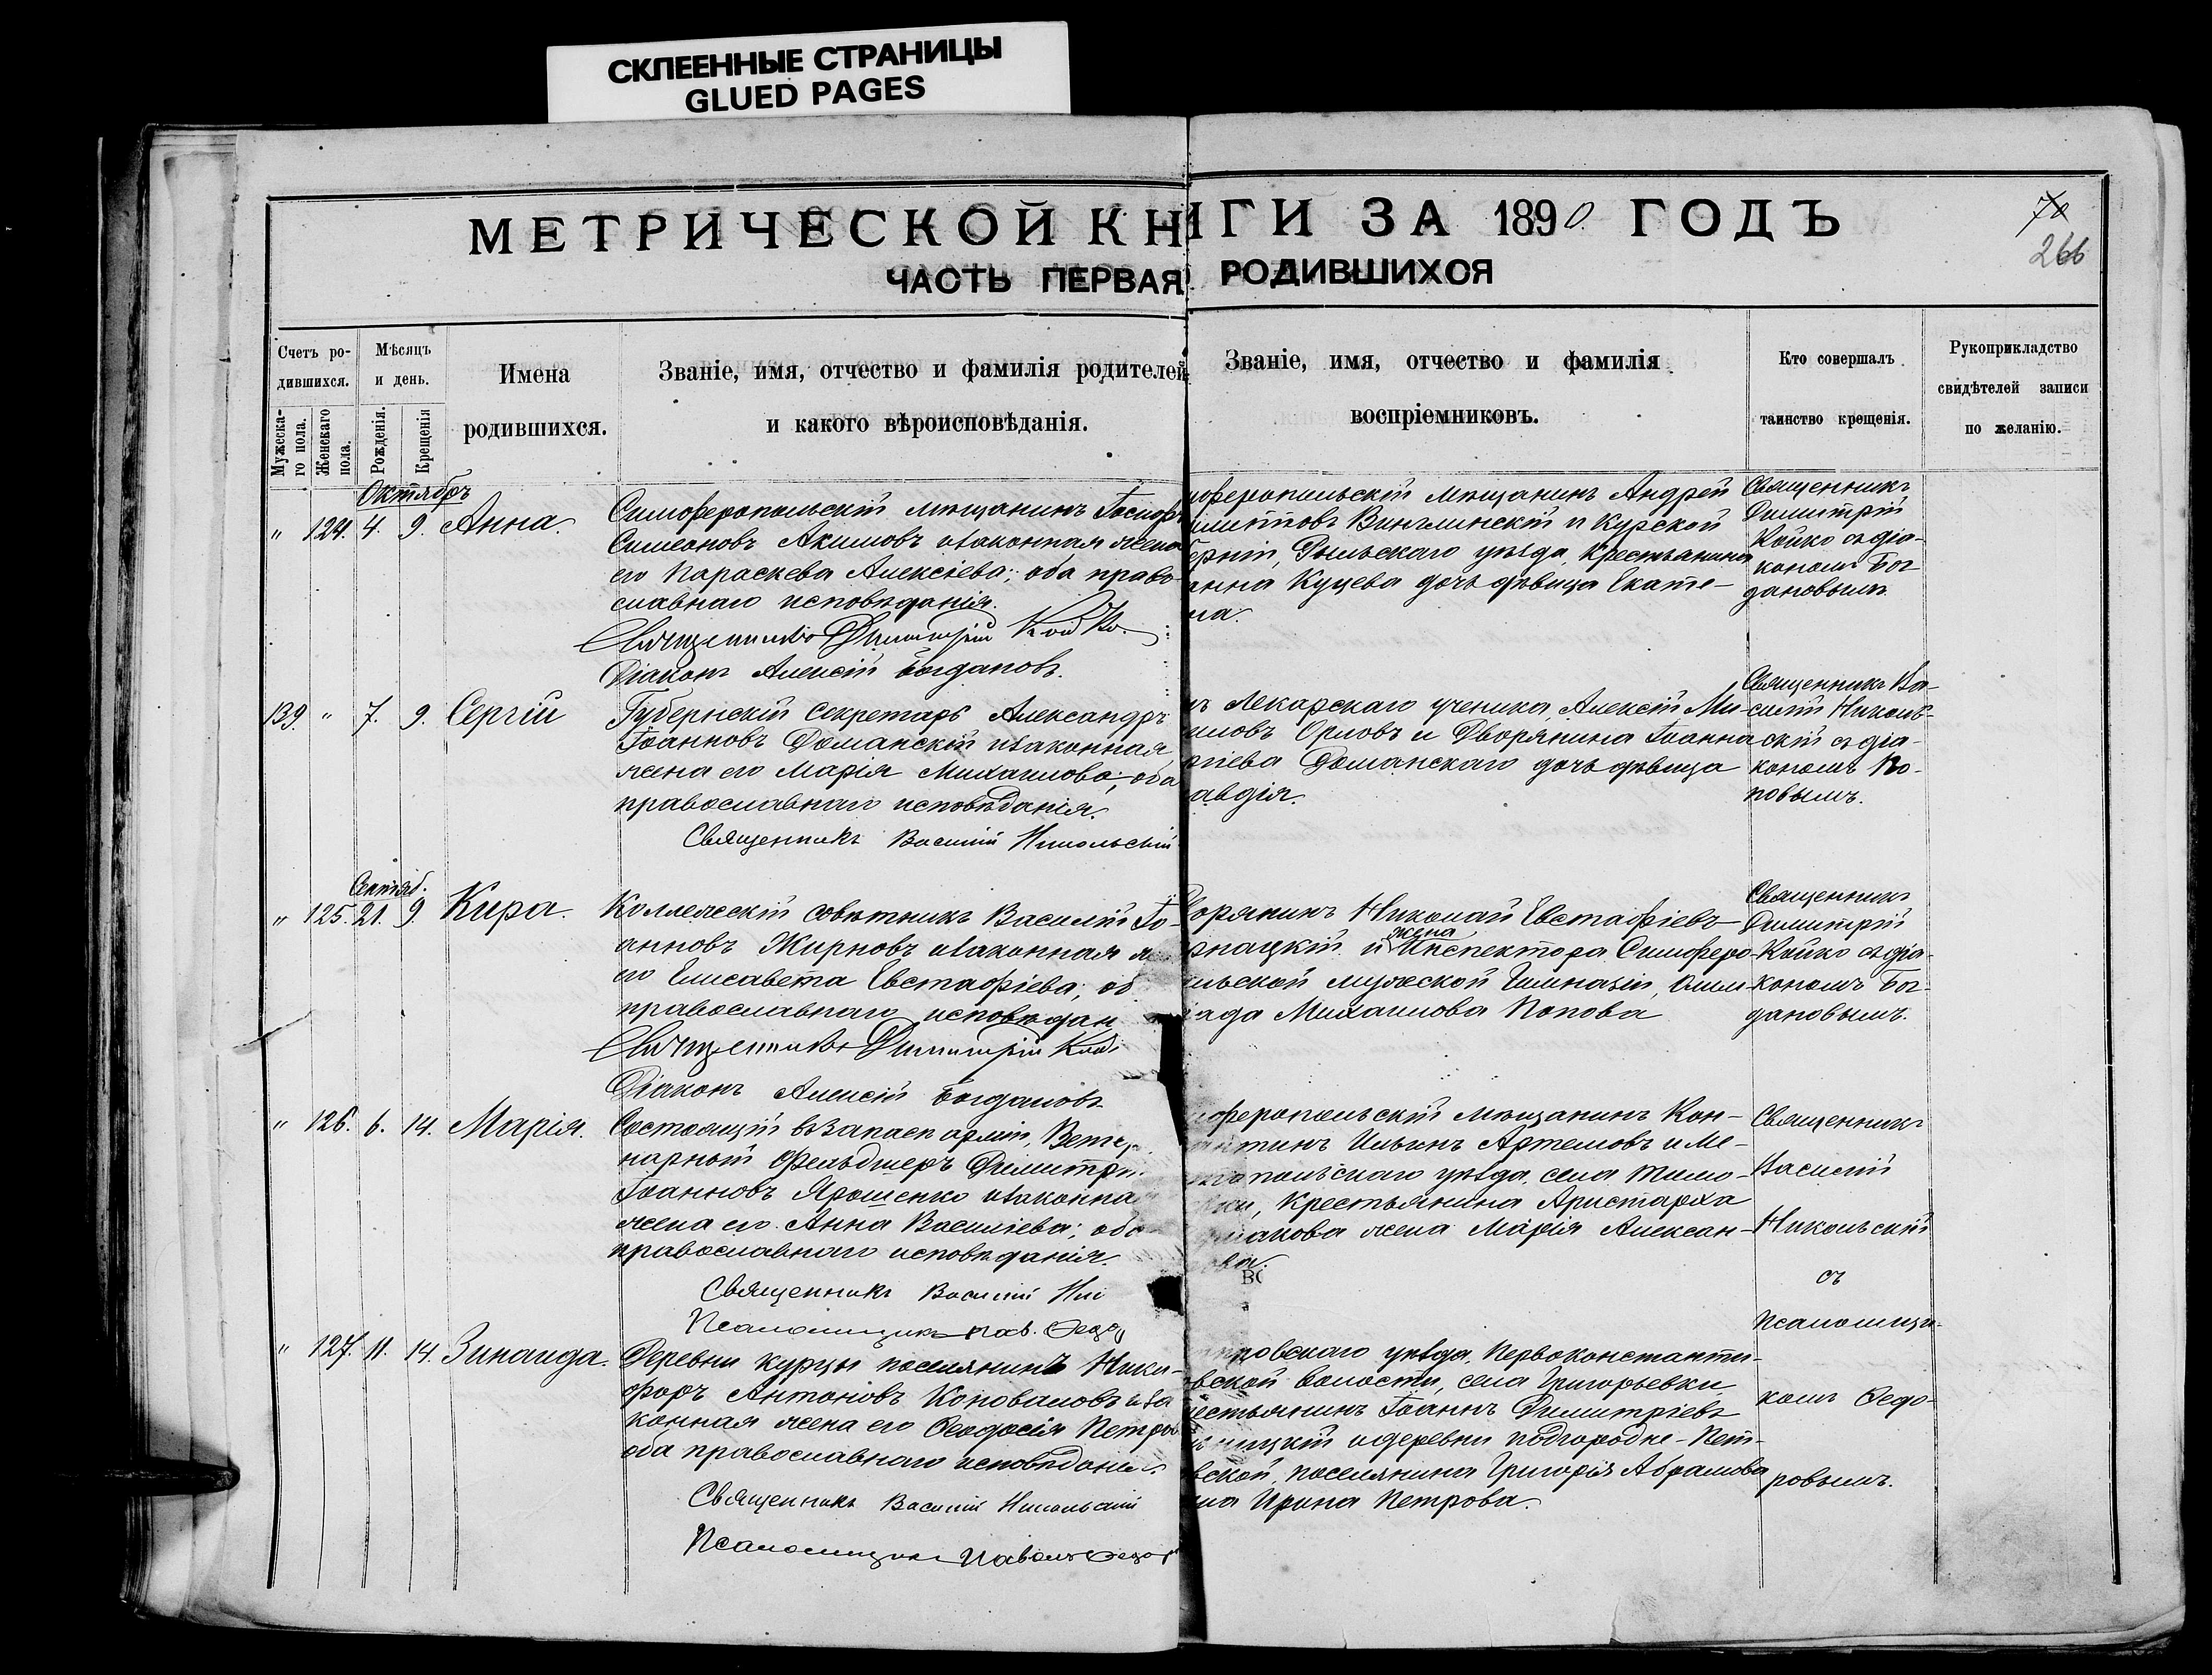 СКЛЕЕННЫЕ СТРАНИЦЫ
GLUED PAGES
МЕТРИЧЕСКОЙ КНИГИ ЗА 1890 ГОДЪ
70
266
ЧАСТЬ ПЕРВАЯ РОДИВШИХСЯ
Счетъ ро-
дившихся.
Мужеска-
го пола.
Женскаго
пола.
Мѣсяцъ
и день.
Рожденія.
Крещенія
Имена
родившихся.
Званіе, имя, отчество и фамилія родителей
и какого вѣроисповѣданія.
Званіе, имя, отчество и фамилія
воспріемниковъ.
Кто совершалъ
таинство крещенія.
Рукоприкладство
свидѣтелей записи
по желанію.
Октябрь
" 124. 4. 9. Анна.
Симферопольскій мѣщанинъ
Симеоновъ Акимовъ изаконная жена
его Параскева Алексіева; оба право-
славнаго исповѣданія.
Священникъ Димитрій Койко.
Діаконъ Алексій Богдановъ.
оферопольскій мѣщанинъ Андрей
и Курской
Рыльскаго уѣзда, крестьянина
анна Куцева дочь дѣвица Екате-
на.
Священникъ
Димитрій
Койко съ діа-
кономъ Бог-
дановымъ
139. " 7. 9. Сергій
Губернскій Секретарь Александръ
Іоанновъ Доманскій изаконная
жена его Марія Михаилова; оба
православнаго исповѣданія.
Священникъ Василій Никольскій
ъ Лекарскаго ученика, Алексій Ми-
иловъ Орловъ и Дворянина Іоанна
ріева Доманскаго дочь дѣвица
авдія.
Священникъ Ва-
силій Николь-
скій съ діа-
кономъ По-
повымъ.
Сентяб.
" 125. 21. 9. Кира.
Коллежскій совѣтникъ Василій Іо-
анновъ Жирновъ изаконная ж
его Елисавета Евстафіева; об
православнаго исповѣдан
Священникъ Димитрій Кой
Діаконъ Алексій Богдановъ
орянинъ Николай Евстафіевъ
рнацкій и жена Инспектора Симферо-
ольской мужской Гимназіи, Олим-
іада Михаилова Попова
Священникъ
Димитрій
Койко съ діа-
кономъ Бог-
дановымъ.
" 126. 6. 14. Марія.
Состоящій въ Запасѣ арміи, Вете
нарный Фельдшеръ Димитрі
Іоанновъ Ярошенко изаконна
жена его Анна Василіева; оба
православнаго исповѣданія.
Священникъ Василій Ни
Псаломщикъ Пав. Ѳедо
оферопольскій мѣщанинъ Кон-
антинъ Ильинъ Артемовъ и Ме-
топольскаго уѣзда, села Тимо-
вки, Крестьянина Аристарха
макова жена Марія Алексан-
ова.
ВО
Священникъ
Василій
Никольскій
съ
псаломщи-
комъ Ѳедо-
ровымъ.
" 127. 11. 14. Зинаида.
Деревни Курцы поселянинъ Ники-
форъ Антоновъ Коноваловъ иза
конная жена его Ѳеодосія Петров
оба православнаго исповѣданія.
Священникъ Василій Никольскій
Псаломщикъ Павелъ Ѳедор
провскаго уѣзда, Первоконстанти-
вской волости, села Григорьевки
естьянинъ Іоаннъ Димитріевъ
ницкій и деревни Подгородне-Пет-
вской, поселянина Григорія Абрамова
на Ирина Петрова.